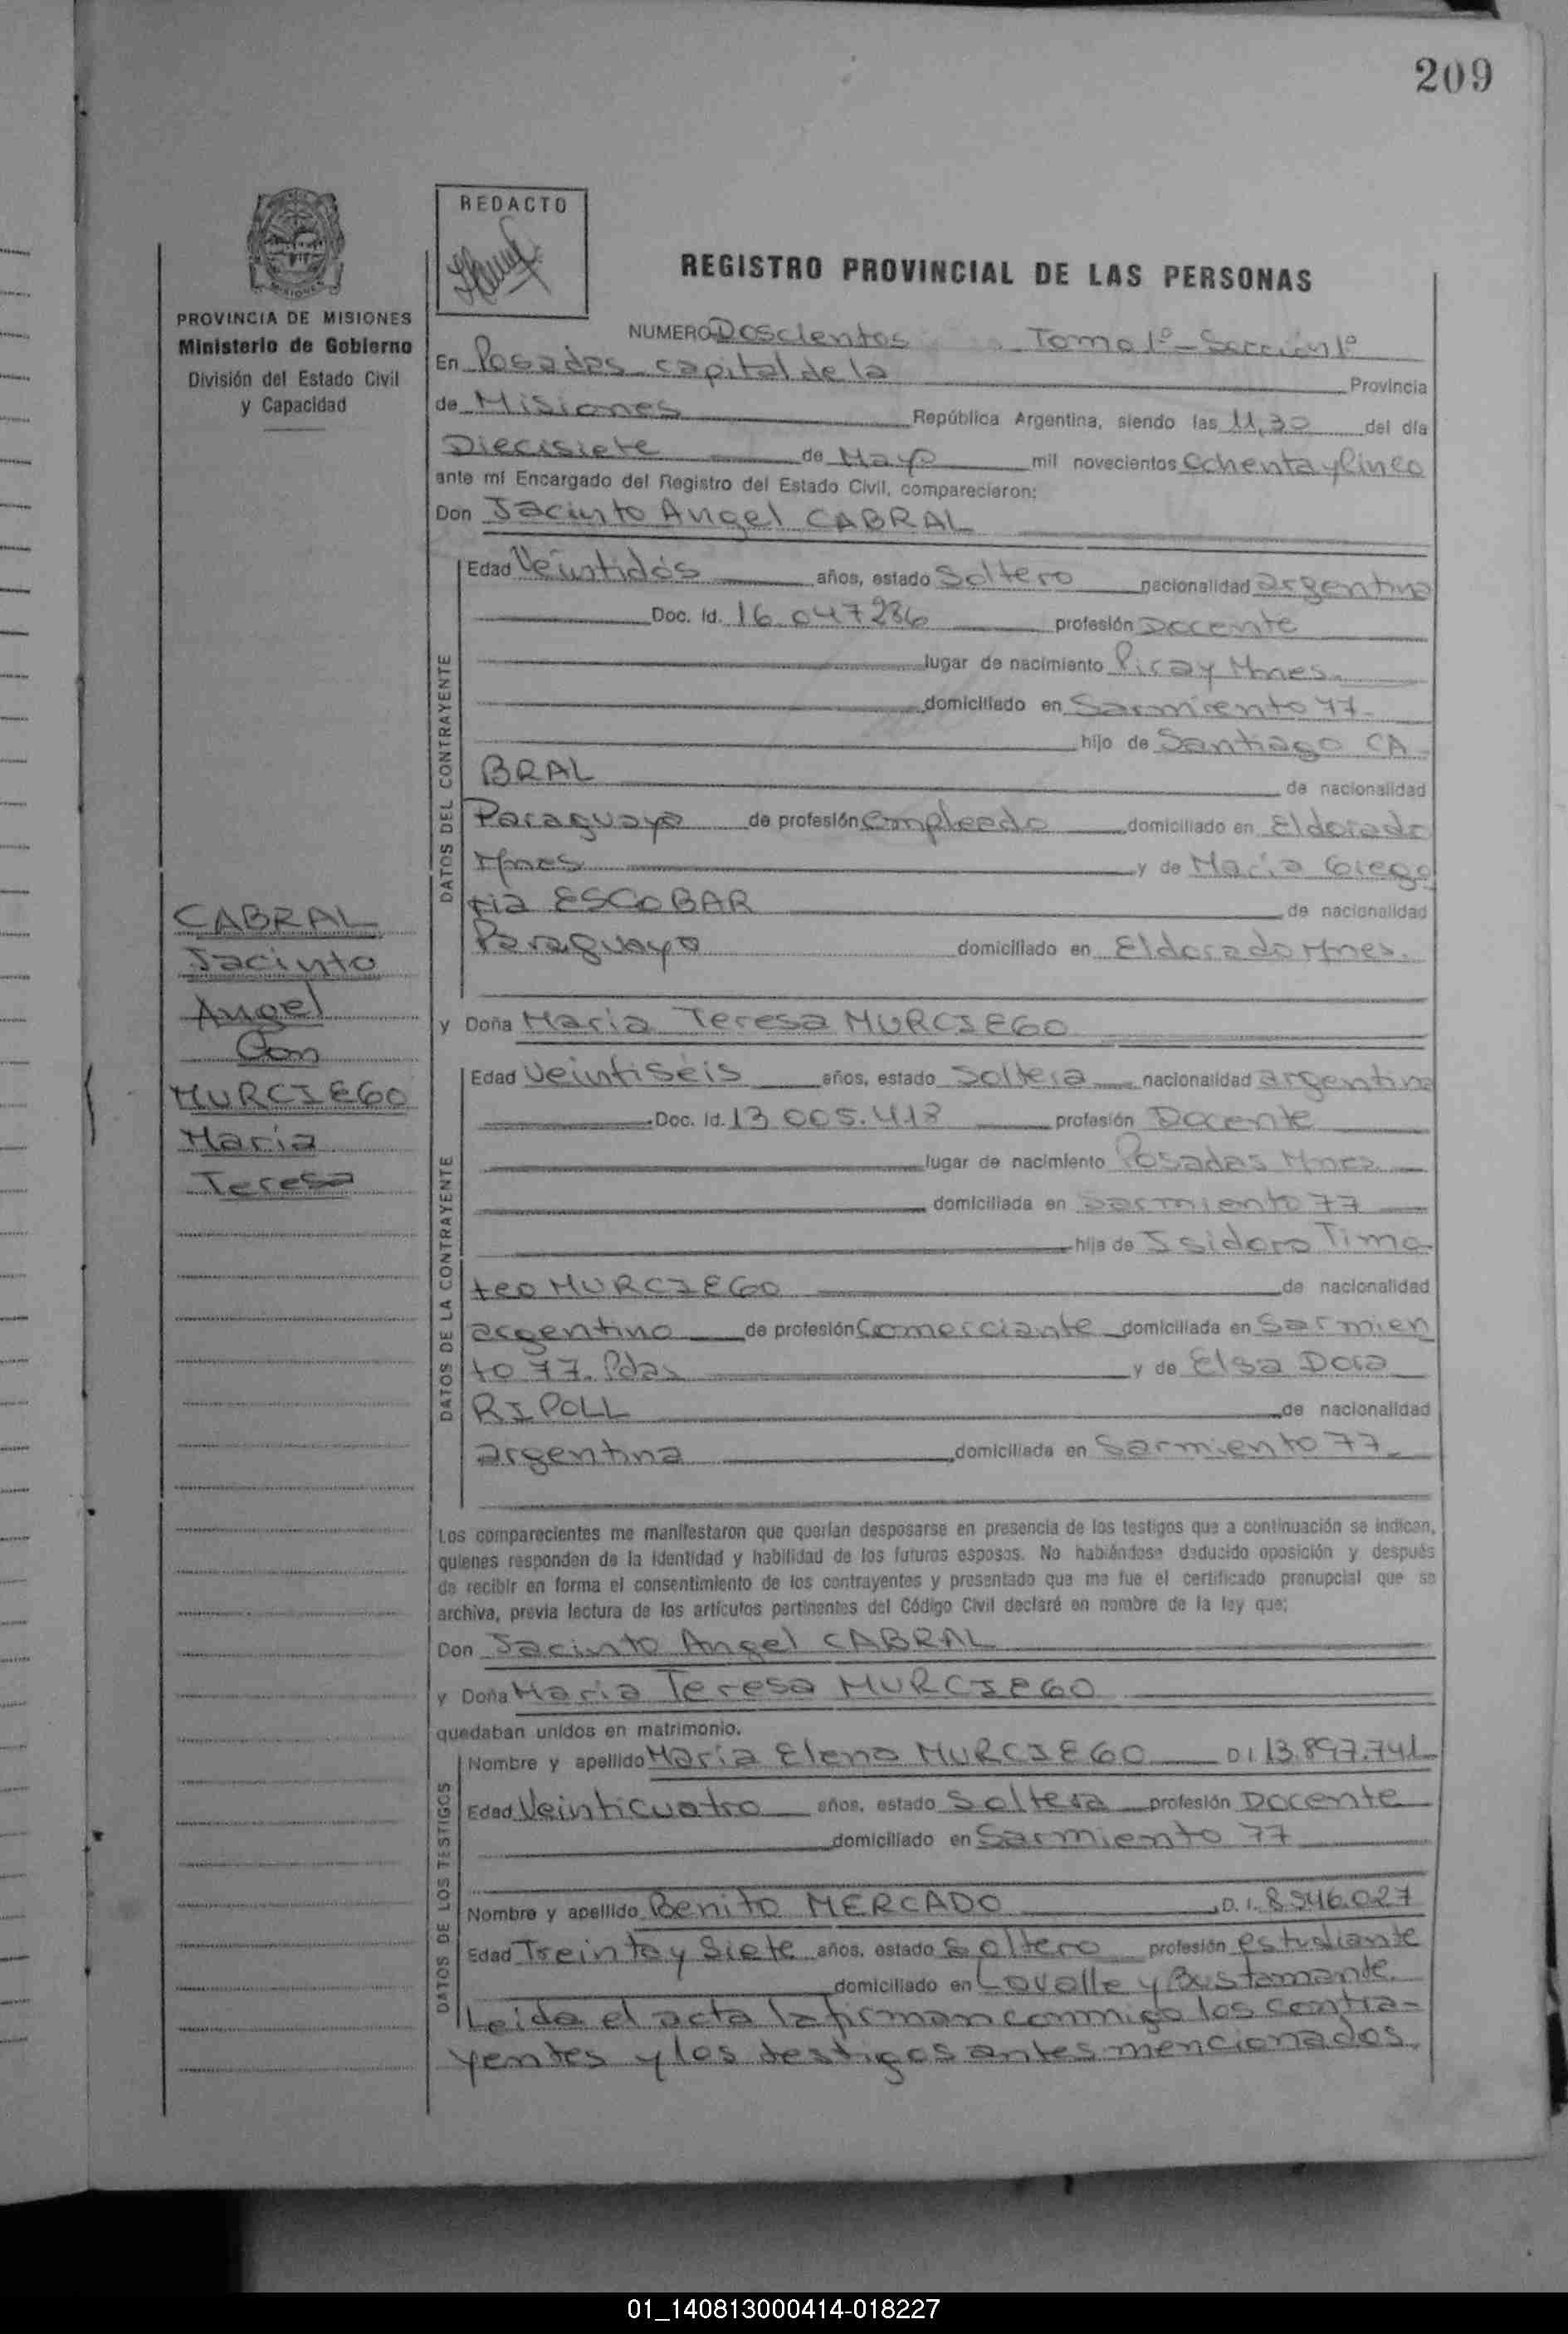 209
REDACTO
REGISTRO PROVINCIAL DE LAS PERSONAS
MISIONES
PROVINCIA DE MISIONES
Ministerio de Gobierno
División del Estado Civil
y Capacidad
NUMERO Doscientos Tomo 1º - Sección 1º
En Posadas capital de la Provincia
de Misiones República Argentina, siendo las 11,30 del día
Diecisiete de Mayo mil novecientos Ochenta y Cinco
ante mí Encargado del Registro del Estado Civil, comparecieron:
Don Jacinto Angel CABRAL
DATOS DEL CONTRAYENTE
Edad Veintidós años, estado Soltero nacionalidad argentina
Doc. Id. 16.047286 profesión Docente
lugar de nacimiento Piray Mnes.
domiciliado en Sarmiento 77.
hijo de Santiago CA
BRAL de nacionalidad
Paraguaya de profesión Empleado domiciliado en Eldorado
Mnes y de Maria Grego
ria ESCOBAR de nacionalidad
Paraguaya domiciliado en Eldorado Mnes.
CABRAL
Jacinto
Angel
Con
MURCIEGO
Maria
Teresa
y Doña Maria Teresa MURCIEGO
DATOS DE LA CONTRAYENTE
Edad Veintiséis años, estado Soltera nacionalidad argentina
Doc. Id. 13.005.418 profesión Docente
lugar de nacimiento Posadas Mnes
domiciliada en Sarmiento 77
hija de Isidoro Timo
teo MURCIEGO de nacionalidad
argentino de profesión Comerciante domiciliada en Sarmien
to 77. Pdas y de Elsa Dora
RIPOLL de nacionalidad
argentina domiciliada en Sarmiento 77.
Los comparecientes me manifestaron que querían desposarse en presencia de los testigos que a continuación se indican,
quienes responden de la identidad y habilidad de los futuros esposos. No habiéndose deducido oposición y después
de recibir en forma el consentimiento de los contrayentes y presentado que me fue el certificado prenupcial que se
archiva, previa lectura de los artículos pertinentes del Código Civil declaré en nombre de la ley que:
Don Jacinto Angel CABRAL
y Doña Maria Teresa MURCIEGO
quedaban unidos en matrimonio.
DATOS DE LOS TESTIGOS
Nombre y apellido Maria Elena MURCIEGO D.I 13.897.741
Edad Veinticuatro años, estado Soltera profesión Docente
domiciliado en Sarmiento 77
Nombre y apellido Benito MERCADO D.I. 8.546.027
Edad Treinta y Siete años, estado Soltero profesión estudiante
domiciliado en Lavalle y Bustamante.
Leida el acta la firman conmigo los contra-
yentes y los testigos antes mencionados.
01_140813000414-018227